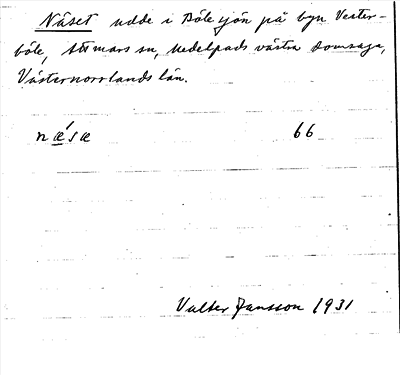 Näset udde i Böle sjön på byn Vester-
böle, Attmars sn, Medelpads västra domsaga,
Västernorrlands län.
næ´sæ 66
Valter Jansson 1931